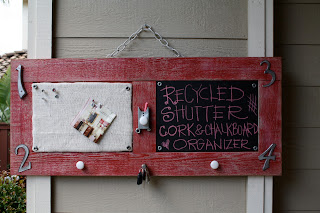 1
3
RECYCLED
SHUTTER
CORK & CHALKBOARD
ORGANIZER
2
4